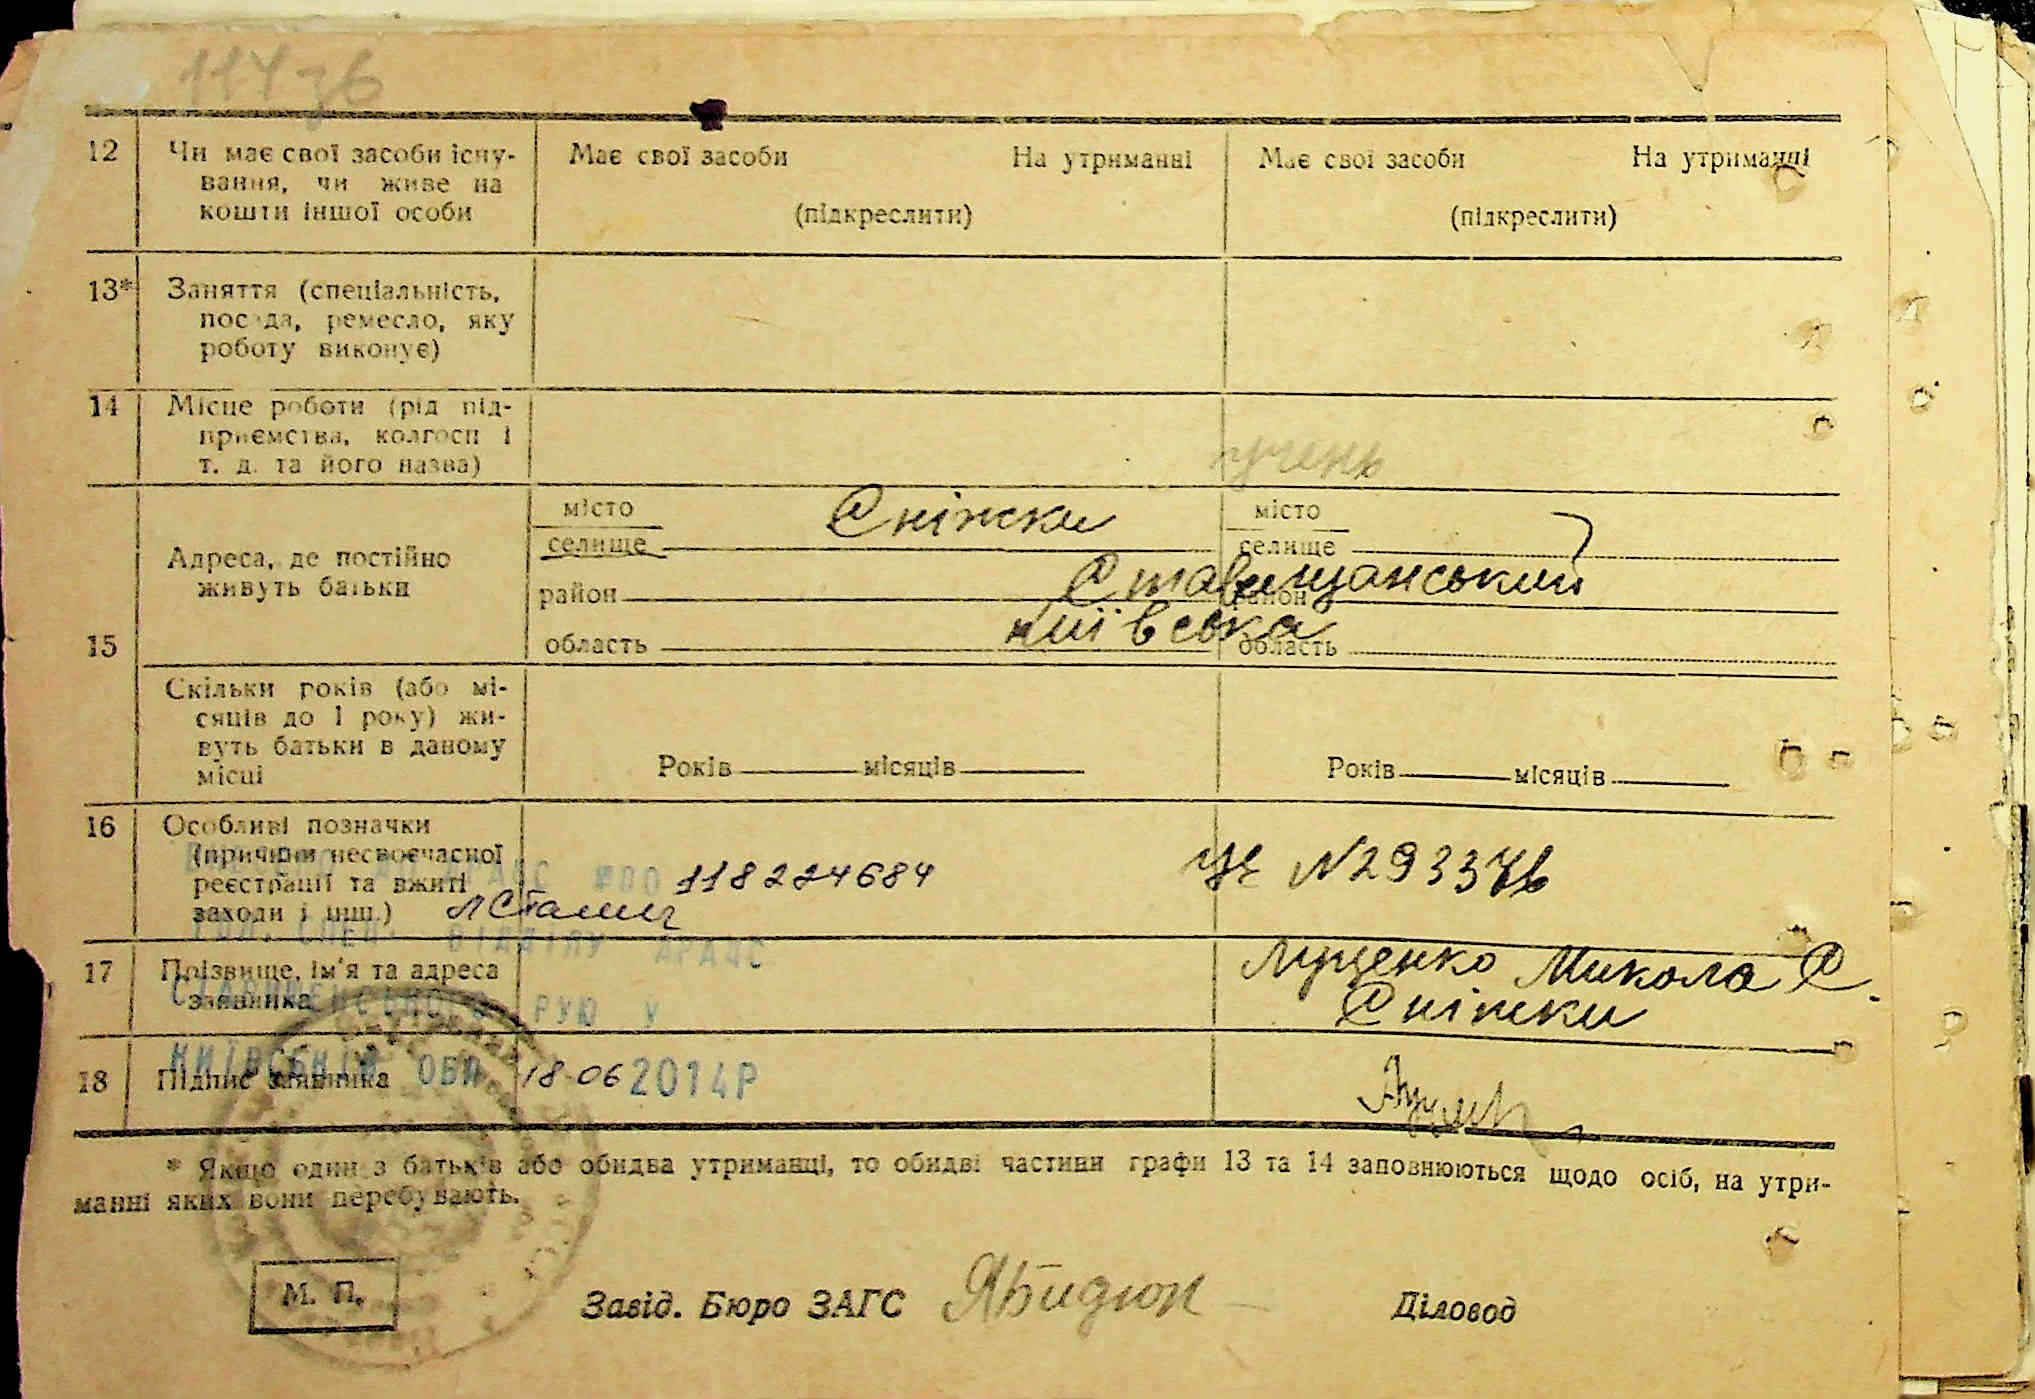 12 Чи має свої засоби існу- Має свої засоби На утриманні Має свої засоби На утриманні
вання, чи живе на
кошти іншої особи (підкреслити) (підкреслити)
13* Заняття (спеціальність,
посада, ремесло, яку
роботу виконує)
14 Місце роботи (рід під-
приємства, колгосп і
т. д. та його назва) учень
місто Сніжки місто
селище селище
Адреса, де постійно
живуть батьки
район Ставищанський район
15 область Київська область
Скільки років (або мі-
сяців до 1 року) жи-
вуть батьки в даному
місці Років місяців Років місяців
16 Особливі позначки
(причини несвоєчасної
реєстрації та вжиті 118224684 № 293376
заходи і інш.)
ВІДДІЛУ ДРАЦС
17 Прізвище, ім'я та адреса Луценко Микола С.
заявника Сніжки
РУЮ У
КИЇВСЬКІЙ ОБЛ
18 Підпис заявника 18-06 2014Р
* Якщо один з батьків або обидва утриманці, то обидві частини графи 13 та 14 заповнюються щодо осіб, на утри-
манні яких вони перебувають.
М. П. Завід. Бюро ЗАГС Діловод